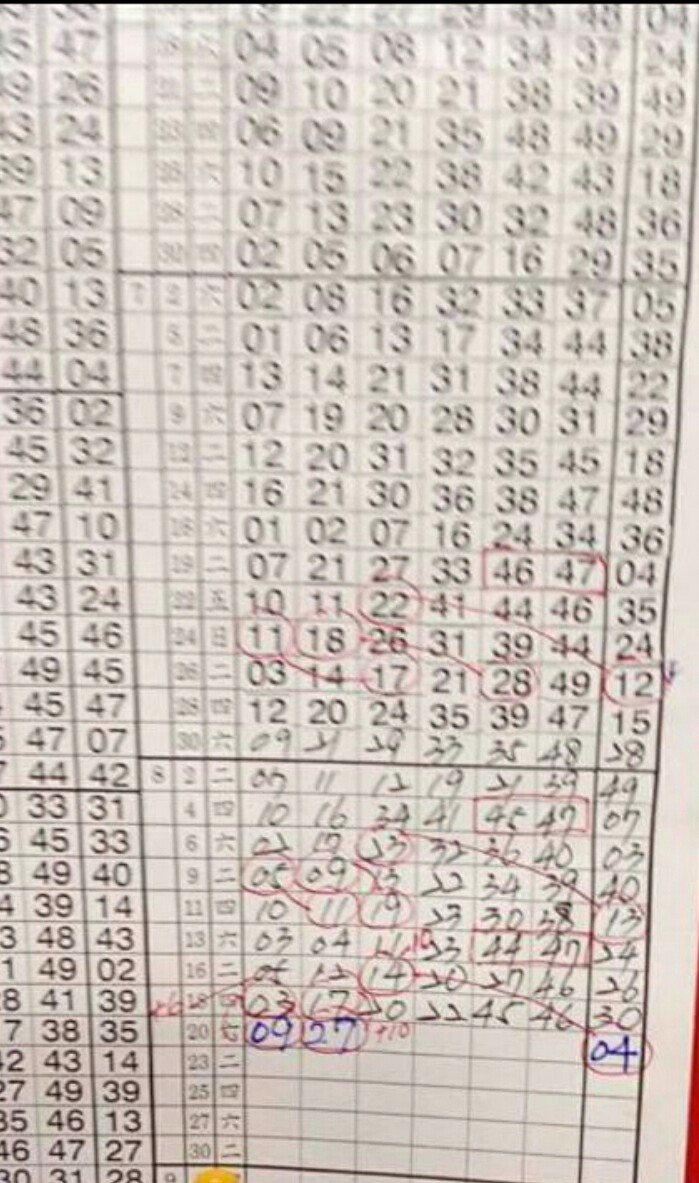 47 16 六 04 05 08 12 34 37 24
26 二 09 10 20 21 38 39 49
24 23 四 06 09 21 35 48 49 29
39 13 25 六 10 15 22 38 42 43 18
47 09 28 二 07 13 23 30 32 48 36
32 05 30 四 02 05 06 07 16 29 35
40 13 7 2 六 02 08 16 32 33 37 05
48 36 5 二 01 06 13 17 34 44 38
44 04 7 四 13 14 21 31 38 44 22
36 02 9 六 07 19 20 28 30 31 29
45 32 12 二 12 20 31 32 35 45 18
29 41 14 四 16 21 30 36 38 47 48
47 10 16 六 01 02 07 16 24 34 36
43 31 19 二 07 21 27 33 46 47 04
43 24 22 五 10 11 22 41 44 46 35
45 46 24 日 11 18 26 31 39 44 24
49 45 26 二 03 14 17 21 28 49 12
45 47 28 四 12 20 24 35 39 47 15
47 07 30 六 09 21 29 33 35 48 28
44 42 8 2 二 07 11 12 19 21 39 49
33 31 4 四 10 16 34 41 45 47 07
45 33 6 六 02 17 23 32 36 40 03
49 40 9 二 05 09 13 22 34 39 40
39 14 11 四 10 11 19 23 30 38 13
48 43 13 六 03 04 11 23 44 47 24
49 02 16 二 05 12 14 20 27 46 26
41 39 18 四 03 17 20 22 45 46 30
38 35 20 六 09 27 +10 04
42 43 14 23 二
27 49 39 25 四
35 46 13 27 六
46 47 27 30 二
30 31 28 9